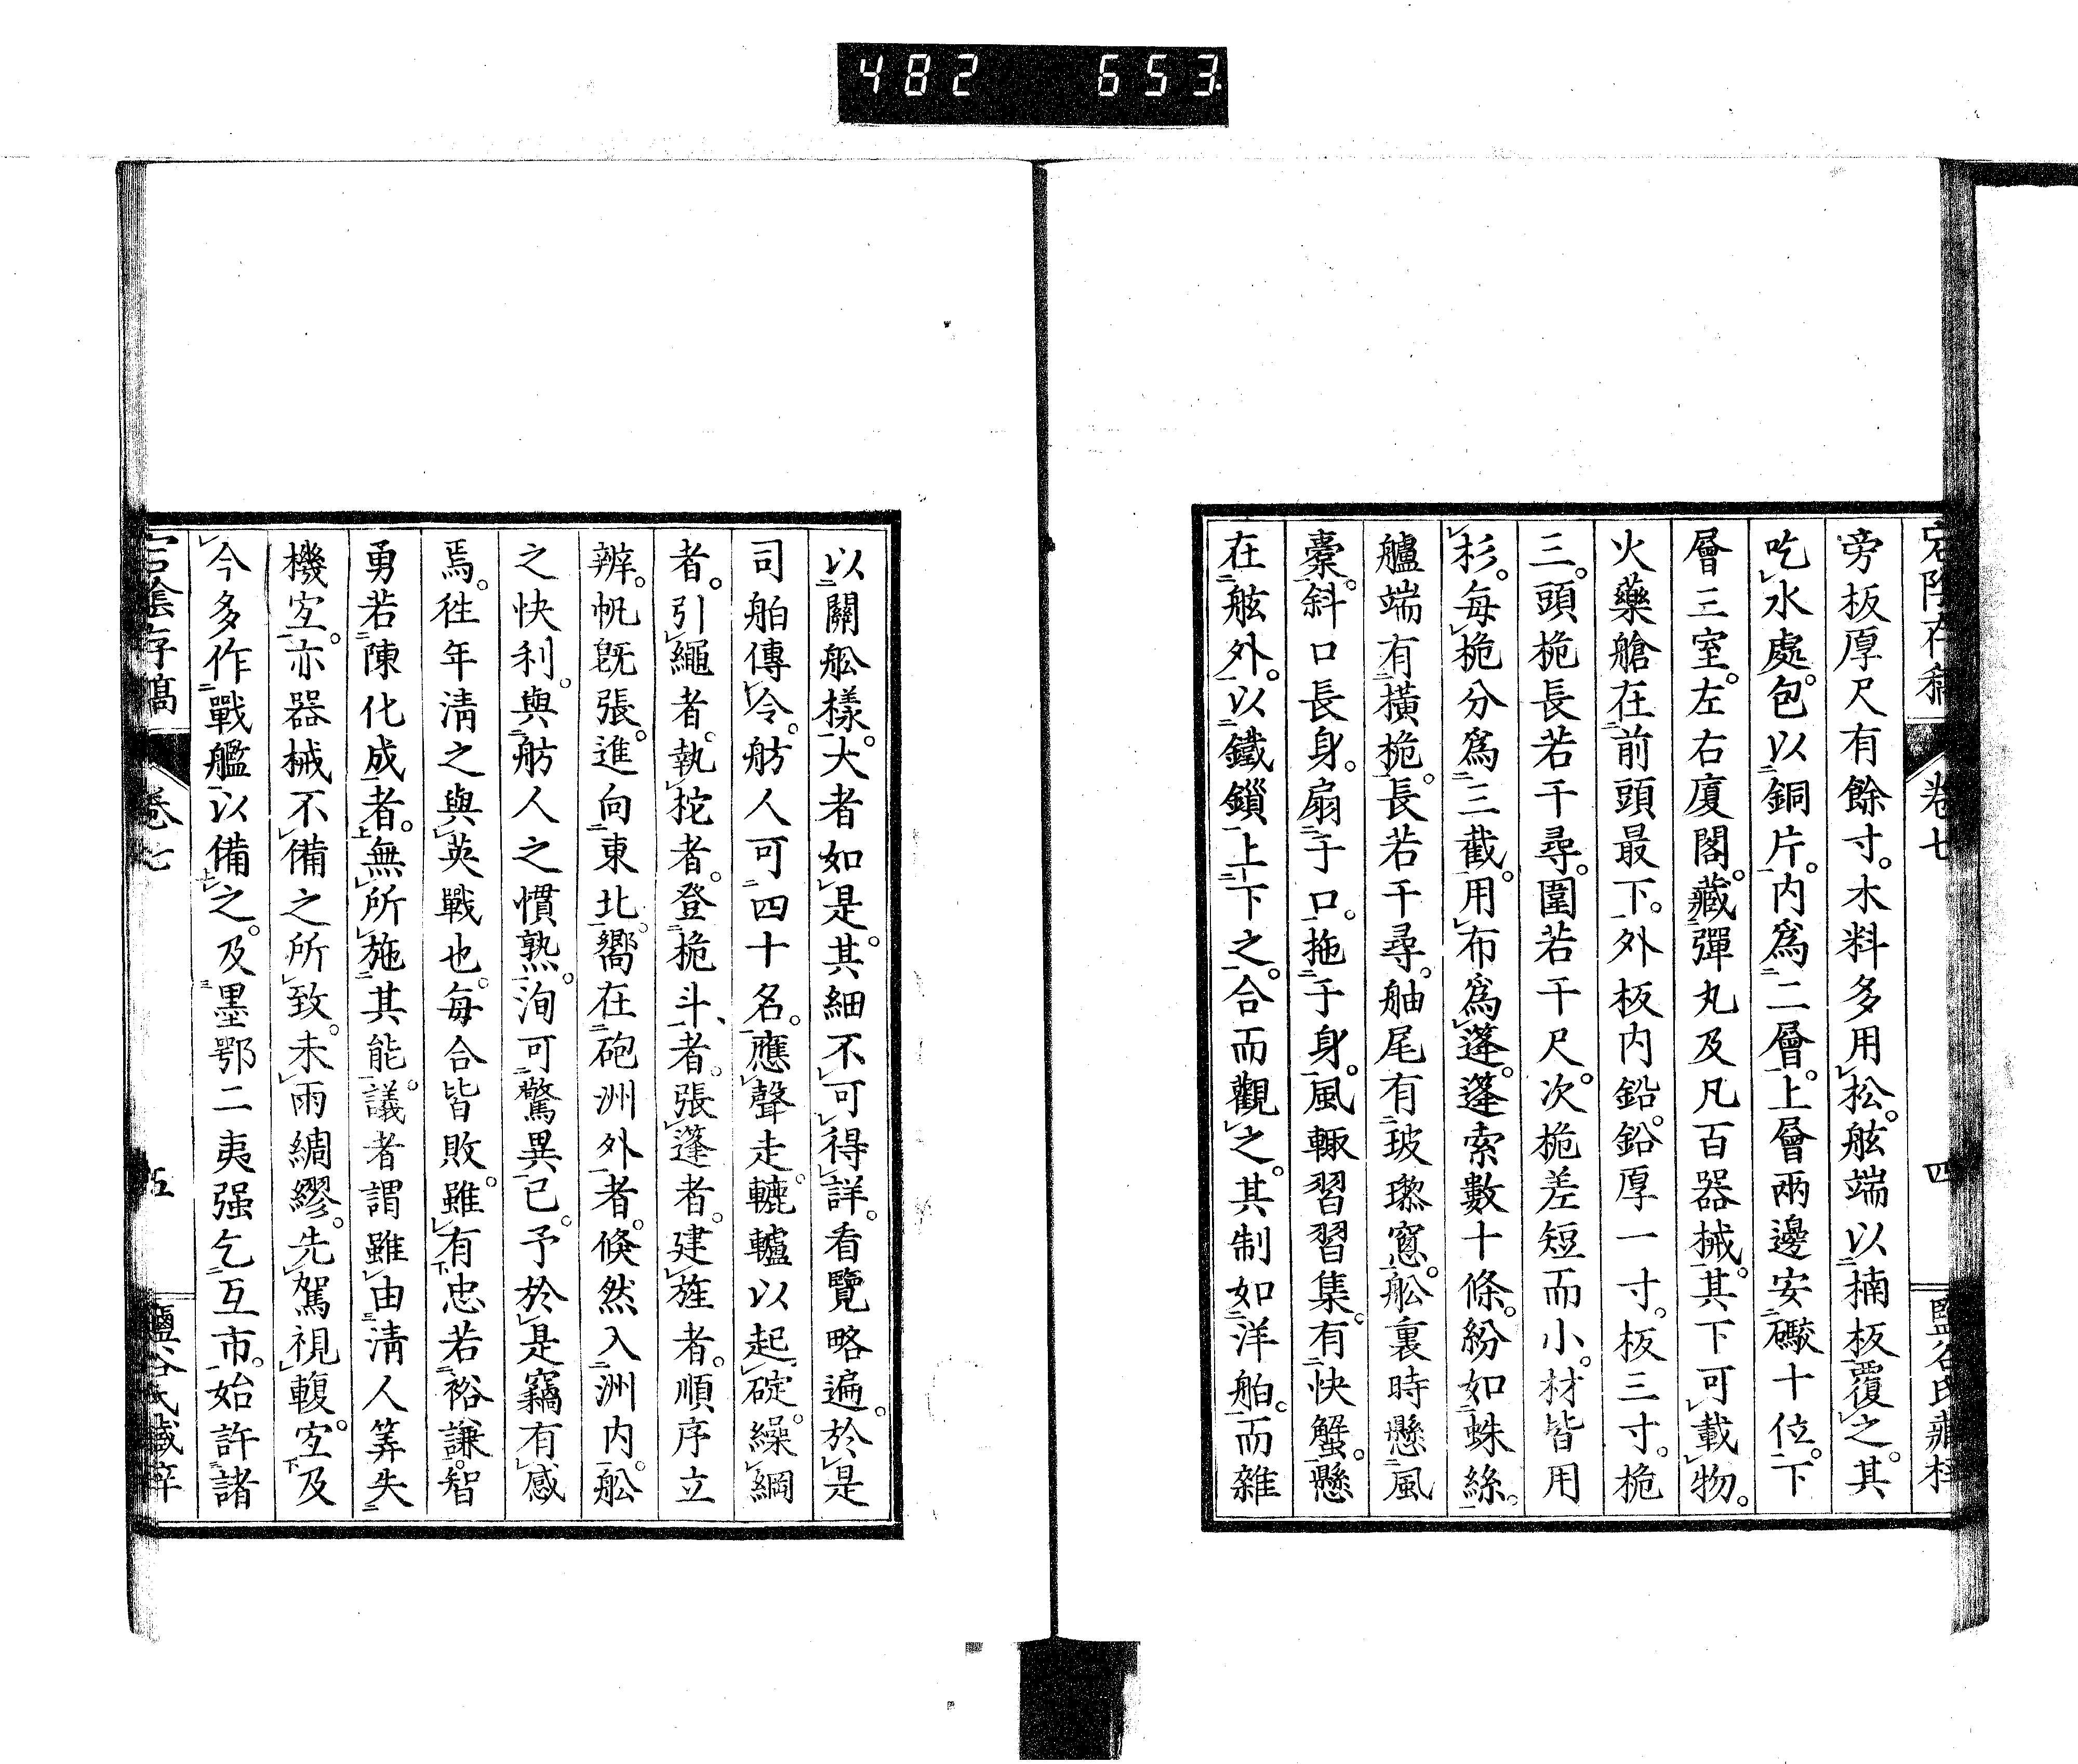 482 653
宕陰存稿 卷七 四 鹽谷氏藏梓
旁板厚尺有餘寸。木料多用松。舷端以楠板覆之。其
吃水處。包以銅片。内爲二層。上層兩邊安礮十位。下
層三室。左右廈閣。藏彈丸及凡百器械。其下可載物。
火藥艙在前頭最下。外板内鉛。鉛厚一寸。板三寸。桅
三。頭桅長若干尋。圍若干尺。次桅差短而小。材皆用
杉。每桅分爲三截。用布爲蓬。蓬索數十條。紛如蛛絲。
艫端有横桅。長若干尋。舳尾有玻瓈窻。舩裏時懸風
橐。斜口長身。扇于口。拖于身。風輙習習集。有快蟹。懸
在舷外。以鐵鎖上下之。合而觀之。其制如洋舶。而雜
以關舩樣。大者如是。其細不可得詳。看覽略遍。於是
司舶傳令。舫人可四十名。應聲走。轆轤以起碇。繰綱
者。引繩者。執柁者。登桅斗者。張蓬者。建旌者。順序立
辨。帆既張。進向東北。嚮在砲洲外者。倐然入洲内。舩
之快利。與舫人之慣熟。洵可驚異已。予於是竊有感
焉。徃年淸之與英戰也。每合皆敗。雖有忠若裕謙。智
勇若陳化成者。無所施其能。議者謂雖由淸人筭失
機宐。亦器械不備之所致。未雨綢繆。先駕視輹。宐及
今多作戰艦以備之。及墨鄂二夷强乞互市。始許諸
宕陰存稿 卷七 五 鹽谷氏藏梓